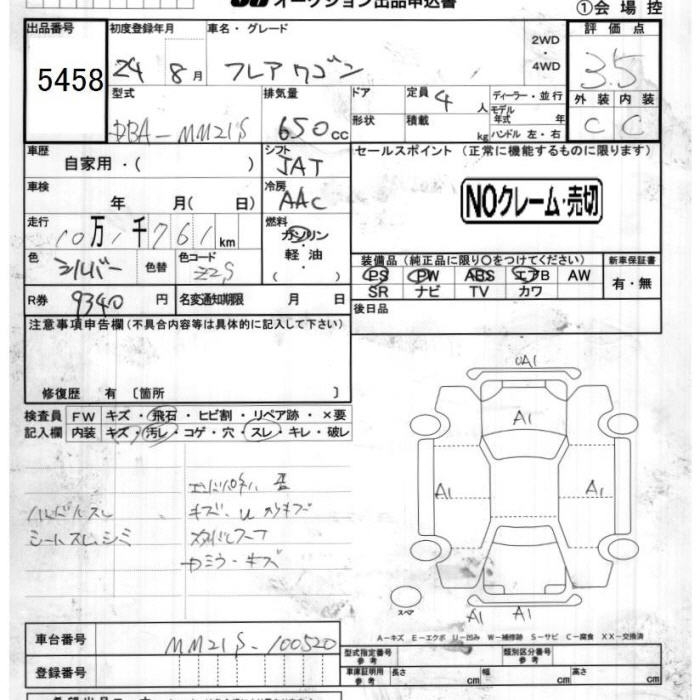 オークション出品申込書
①会場控
出品番号 初度登録年月 車名・グレード 2WD・4WD 評価点
5458 24 8月 フレアワゴン 3.5
型式 排気量 ドア 定員 4人 ディーラー・並行 外装 内装
形状 積載 kg モデル年式 年 ハンドル 左・右
DBA-MM21S 650cc C C
車歴 シフト セールスポイント (正常に機能するものに限ります)
自家用・( ) JAT
車検 冷房 NOクレーム・売切
年 月( 日) AAC
走行 燃料
10万1千761km ガソリン・軽油 ( )
色 シルバー 色替 色コード Z2S
装備品 (純正品に限り○をつけてください) 新車保証書
PS PW ABS エアB AW 有・無
SR ナビ TV カワ
R券 9340円 名変通知期限 月 日
後日品
注意事項申告欄(不具合内容等は具体的に記入して下さい)
修復歴 有 〔箇所 〕
検査員 FW キズ・飛石・ヒビ割・リペア跡・×要
記入欄 内装 キズ・汚レ・コゲ・穴・スレ・キレ・破レ
UA1
A1
A1
A1
ハンドルスレ キズ・U
シートスレ、シミ
キズ
スペア
A1 A1
A-キズ E-エクボ U-凹み W-補修跡 S-サビ C-腐食 XX-交換済
車台番号 MM21S-100520
型式指定番号 参考 類別区分番号 参考
登録番号 車庫証明用 参考 長さ cm 幅 cm 高さ cm